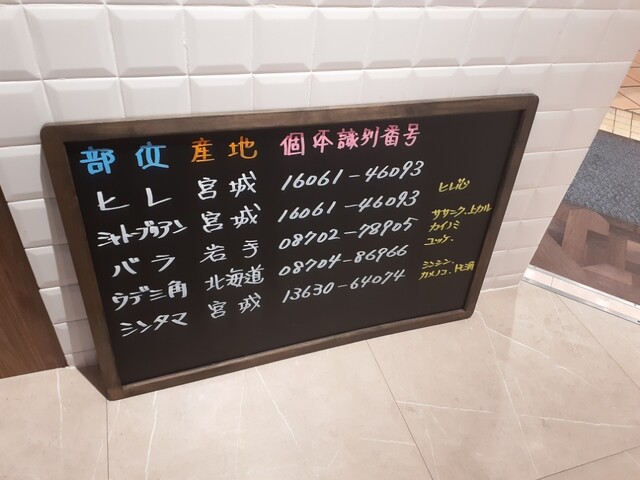 部位 産地 個体識別番号
ヒレ 宮城 16061-46093
シャトーブリアン 宮城 16061-46093
バラ 岩手 08702-78905
ウデ三角 北海道 08704-86966
シンタマ 宮城 13630-64074
ササニク、上カル
カイノミ
ユッケ、
シンシン、